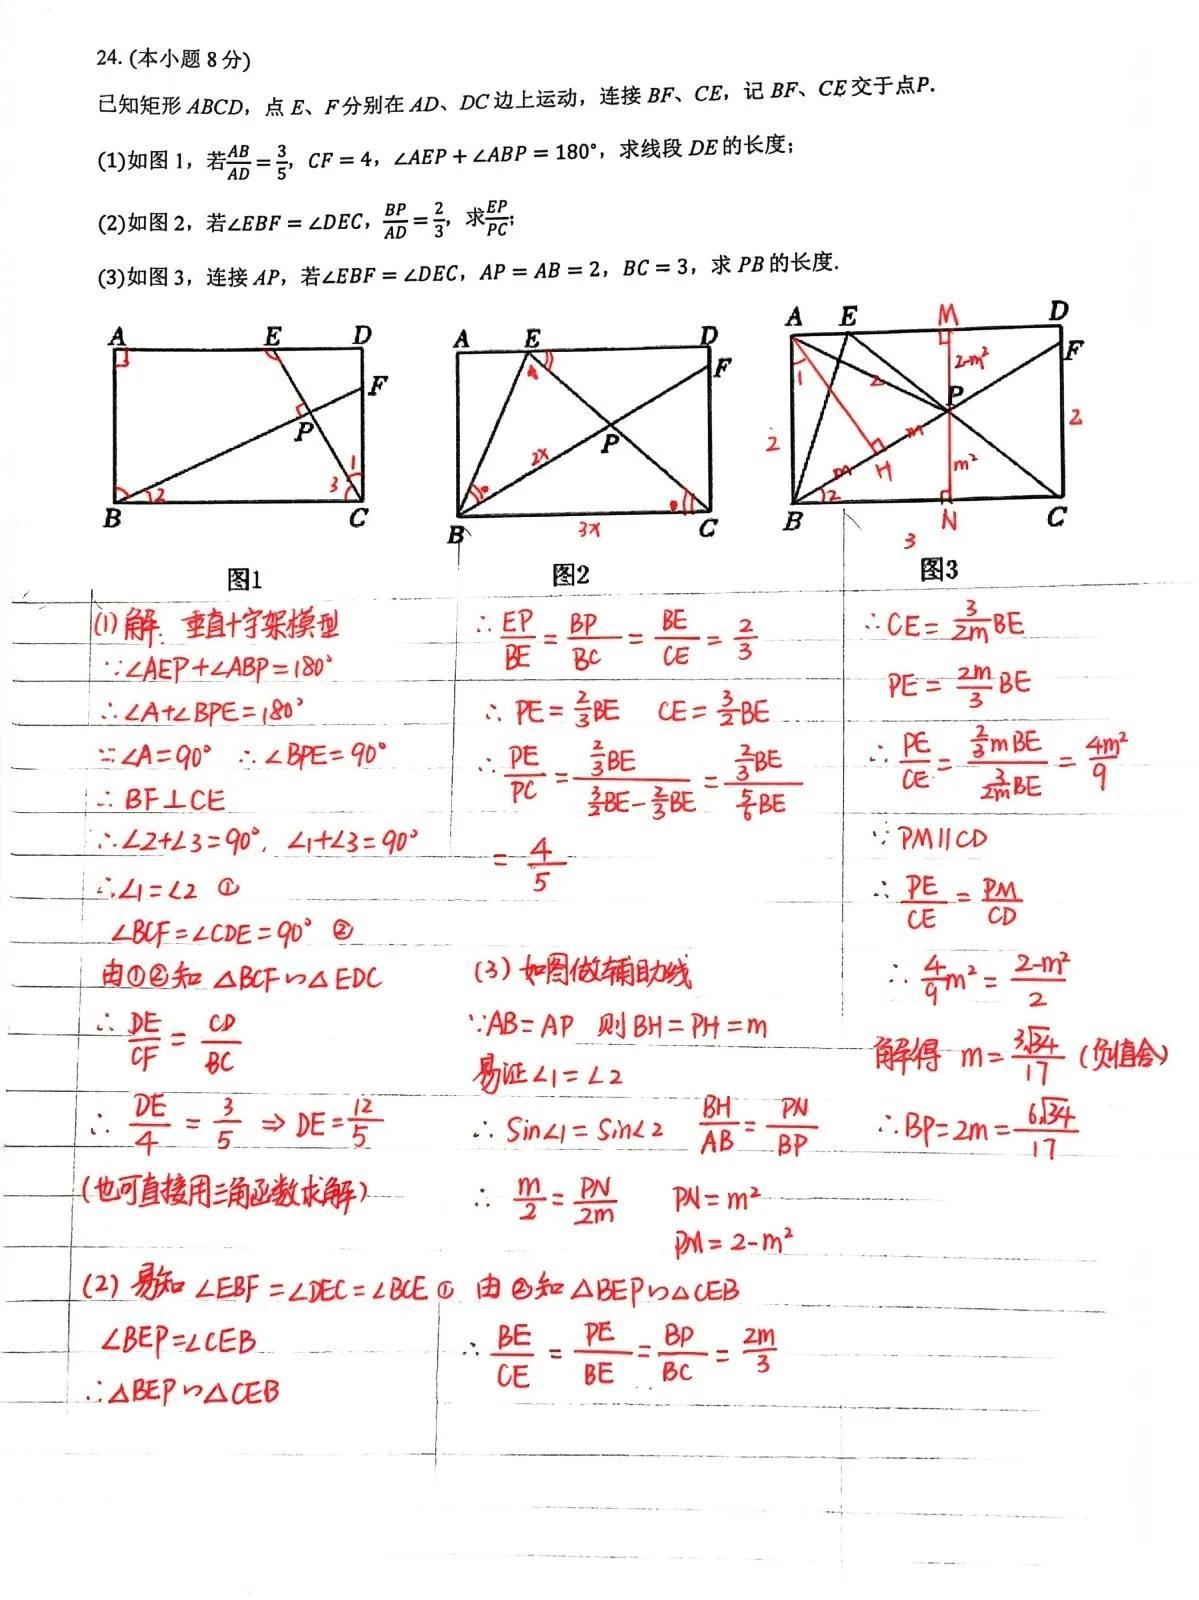 24. (本小题 8 分)
已知矩形 ABCD，点 E、F分别在 AD、DC 边上运动，连接 BF、CE，记 BF、CE交于点P.
(1)如图 1，若AB/AD = 3/5，CF = 4，∠AEP + ∠ABP = 180°，求线段 DE 的长度；
(2)如图 2，若∠EBF = ∠DEC，BP/AD = 2/3，求EP/PC；
(3)如图 3，连接 AP，若∠EBF = ∠DEC，AP = AB = 2，BC = 3，求 PB 的长度.
A E D
F
P
1
2
3
B C
图1
A E D
F
P
2x
3x
B C
图2
A E M D
F
1
2
2-m²
P
2
m
m
H
m²
2
2
B N C
3
图3
(1) 解: 垂直十字架模型
∵∠AEP+∠ABP=180°
∴∠A+∠BPE=180°
∵∠A=90° ∴∠BPE=90°
∴BF⊥CE
∴∠2+∠3=90°, ∠1+∠3=90°
∴∠1=∠2 ①
∠BCF=∠CDE=90° ②
由①②知 △BCF∽△EDC
∴ DE/CF = CD/BC
∴ DE/4 = 3/5 ⇒ DE=12/5
(也可直接用三角函数求解)
(2) 易知 ∠EBF=∠DEC=∠BCE ①
∠BEP=∠CEB
∴△BEP∽△CEB
∴ EP/BE = BP/BC = BE/CE = 2/3
∴ PE=2/3BE CE=3/2BE
∴ PE/PC = 2/3BE/(3/2BE-2/3BE) = 2/3BE/(5/6BE)
= 4/5
(3) 如图做辅助线
∵AB=AP 则BH=PH=m
易证∠1=∠2
∴ Sin∠1=Sin∠2 BH/AB=PN/BP
∴ m/2=PN/2m PN=m²
PM=2-m²
由②知△BEP∽△CEB
∴ BE/CE = PE/BE = BP/BC = 2m/3
∴CE=3/2m BE
PE=2m/3 BE
∴ PE/CE = 2/3mBE/(3/2m BE) = 4m²/9
∵PM∥CD
∴ PE/CE = PM/CD
∴ 4/9m² = 2-m²/2
解得 m=3√34/17 (负值舍)
∴BP=2m=6√34/17